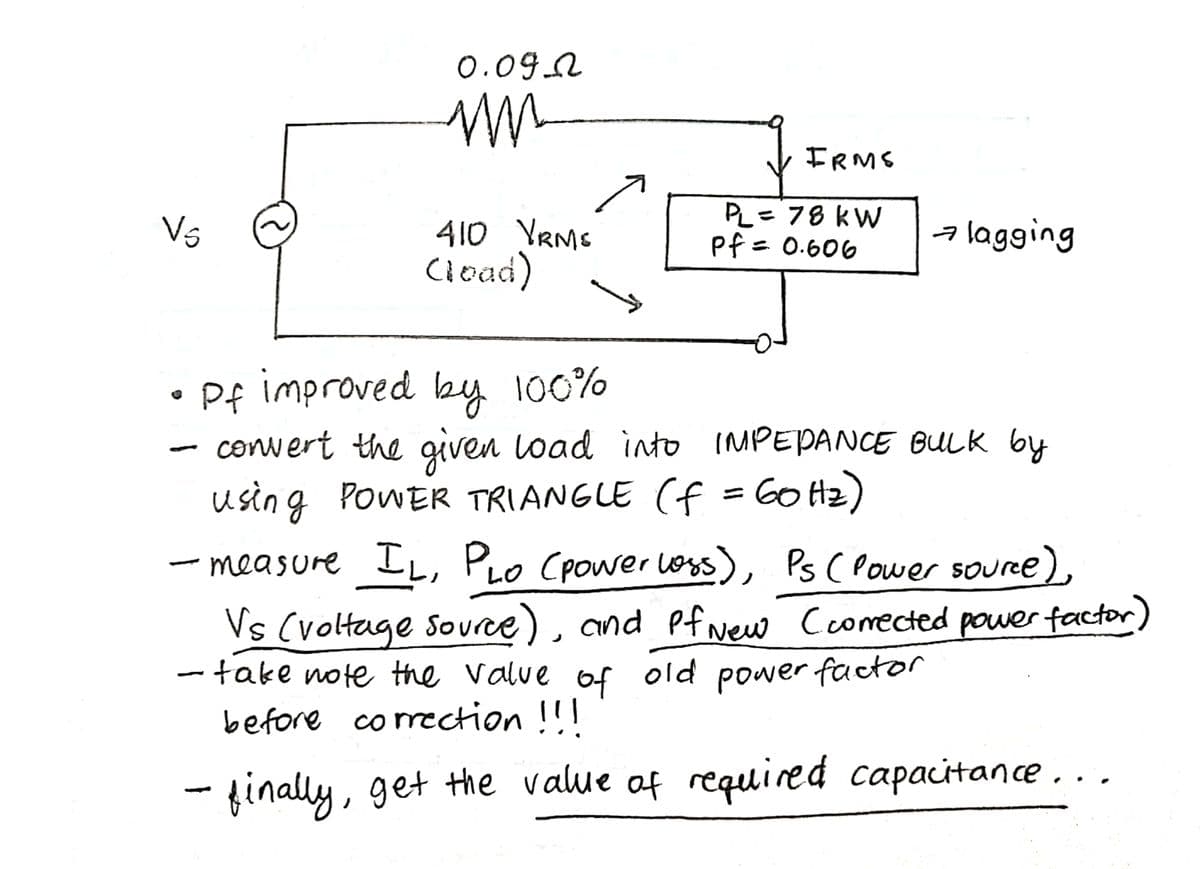 0.09Ω
IRMS
Vs
410 VRMS
(load)
PL = 78 kW
Pf = 0.606
→ lagging
• Pf improved by 100%
- convert the given load into IMPEDANCE BULK by
using POWER TRIANGLE (f = 60 Hz)
- measure IL, PLO (power loss), Ps (Power source),
Vs (voltage source), and Pf New (corrected power factor)
- take note the value of old power factor
before correction !!!
- finally, get the value of required capacitance...